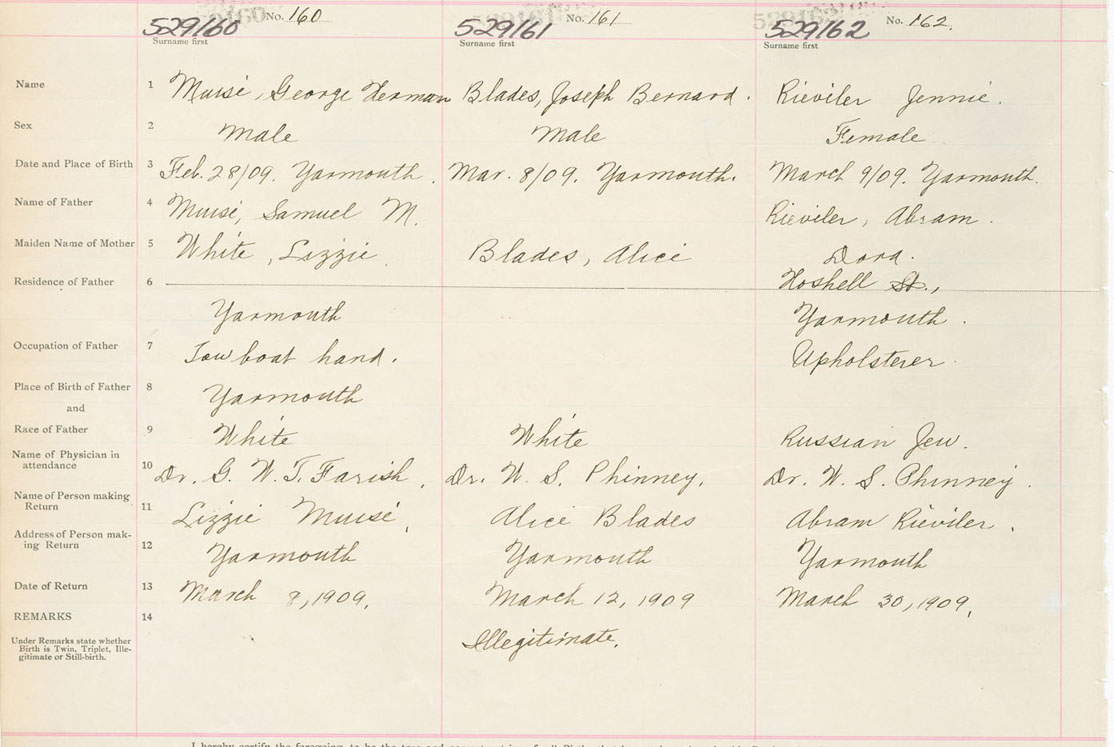 529160 No. 160 529161 No. 161 529162 No. 162.
Surname first Surname first Surname first
Name 1 Muise, George Herman Blades, Joseph Bernard. Rieviler Jennie.
Sex 2 Male Male Female
Date and Place of Birth 3 Feb. 28/09. Yarmouth. Mar. 8/09. Yarmouth. March 9/09. Yarmouth.
Name of Father 4 Muise, Samuel M. Rieviler, Abram.
Maiden Name of Mother 5 White, Lizzie Blades, Alice Dora.
Residence of Father 6 Hoshell St.,
Yarmouth Yarmouth.
Occupation of Father 7 Tow boat hand. Upholsterer.
Place of Birth of Father 8 Yarmouth
and
Race of Father 9 White White Russian Jew.
Name of Physician in
attendance 10 Dr. G. W. T. Farish, Dr. W. S. Phinney, Dr. W. S. Phinney.
Name of Person making
Return 11 Lizzie Muise, Alice Blades Abram Rieviler.
Address of Person mak-
ing Return 12 Yarmouth Yarmouth Yarmouth
Date of Return 13 March 8, 1909, March 12, 1909 March 30, 1909,
REMARKS 14
Under Remarks state whether
Birth is Twin, Triplet, Ille-
gitimate or Still-birth.
Illegitimate.